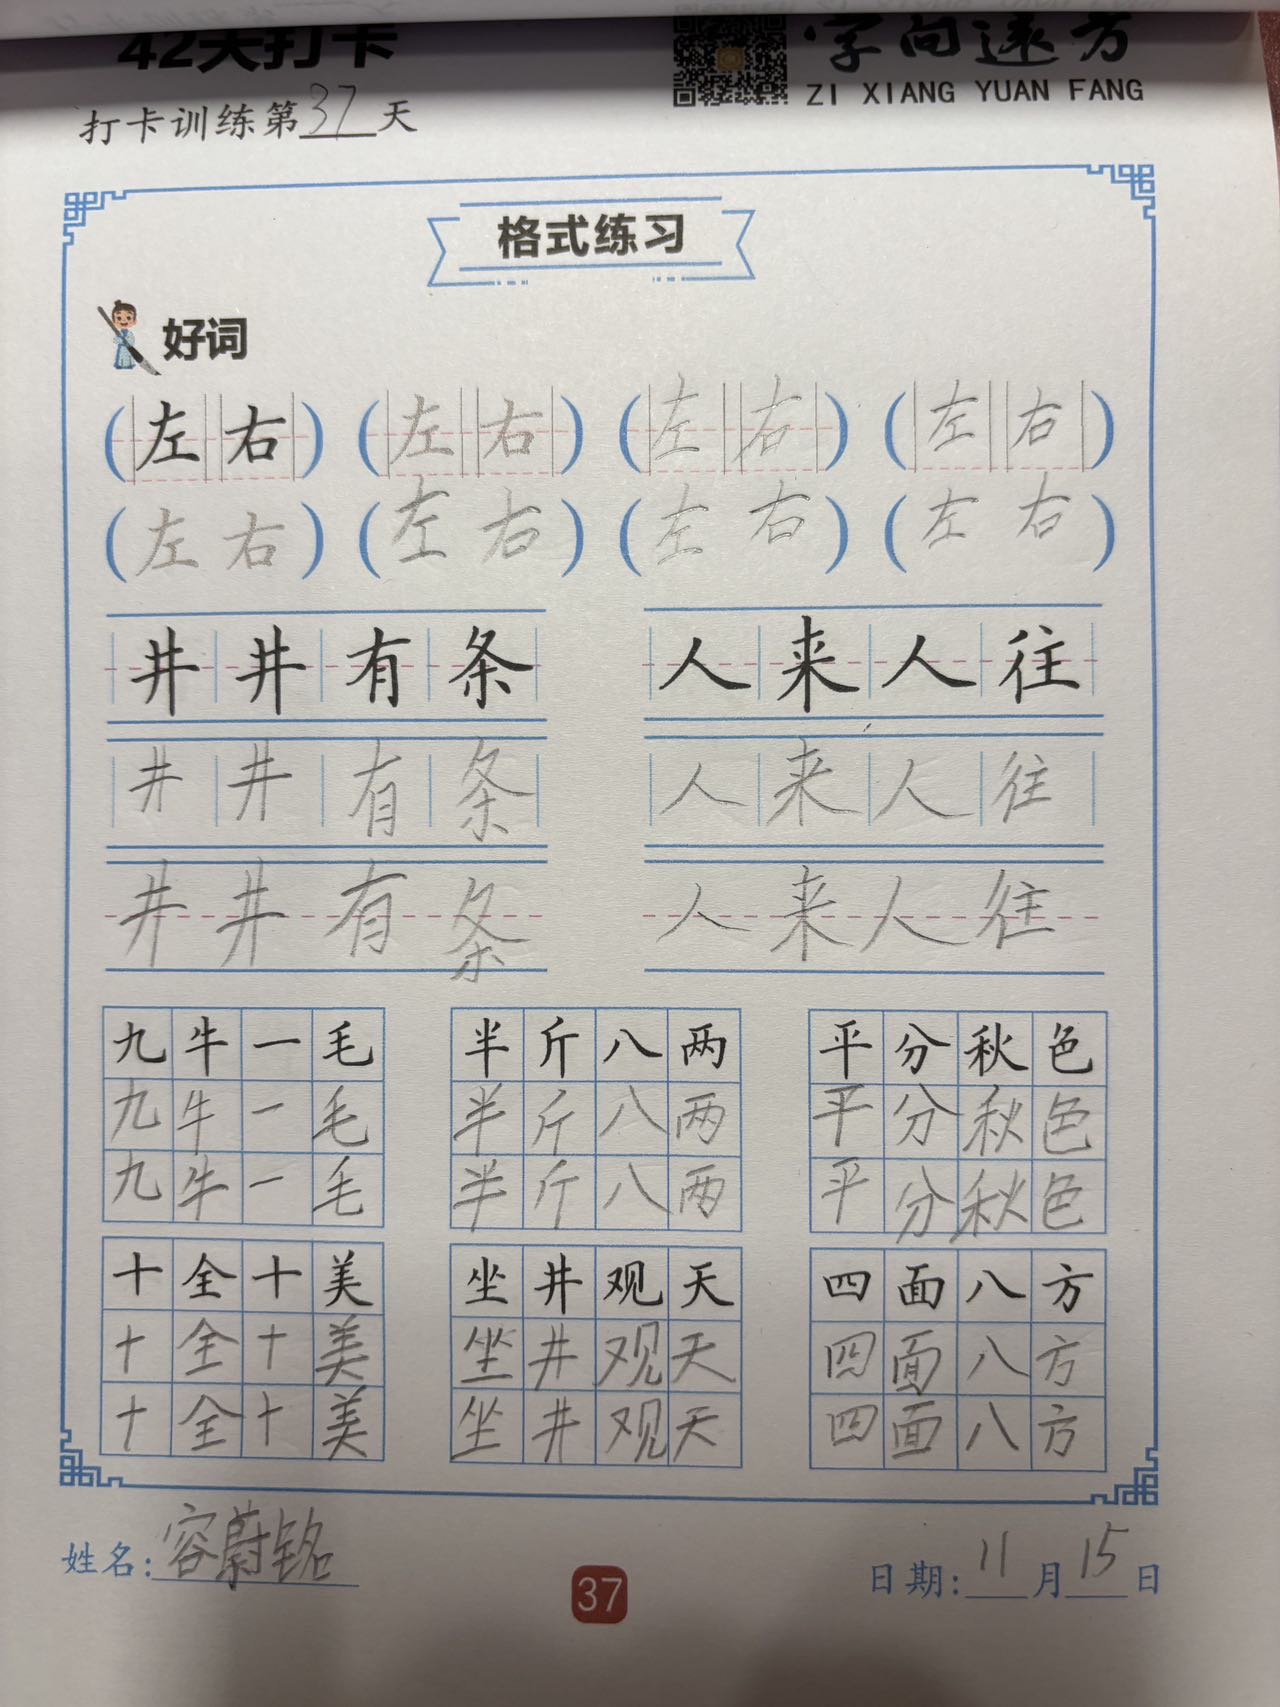 42天打卡
字向远方
ZI XIANG YUAN FANG
打卡训练第37天
格式练习
好词
(左右)(左右)(左右)(左右)
(左右)(左右)(左右)(左右)
井井有条 人来人往
井井有条 人来人往
井井有条 人来人往
九牛一毛 半斤八两 平分秋色
九牛一毛 半斤八两 平分秋色
九牛一毛 半斤八两 平分秋色
十全十美 坐井观天 四面八方
十全十美 坐井观天 四面八方
十全十美 坐井观天 四面八方
姓名:容蔚铭
日期:11月15日
37